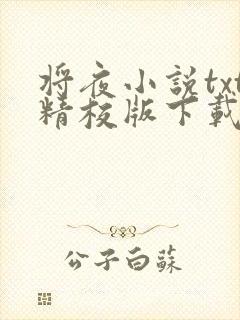 将夜小説txt
精校版下載
公子白蘇